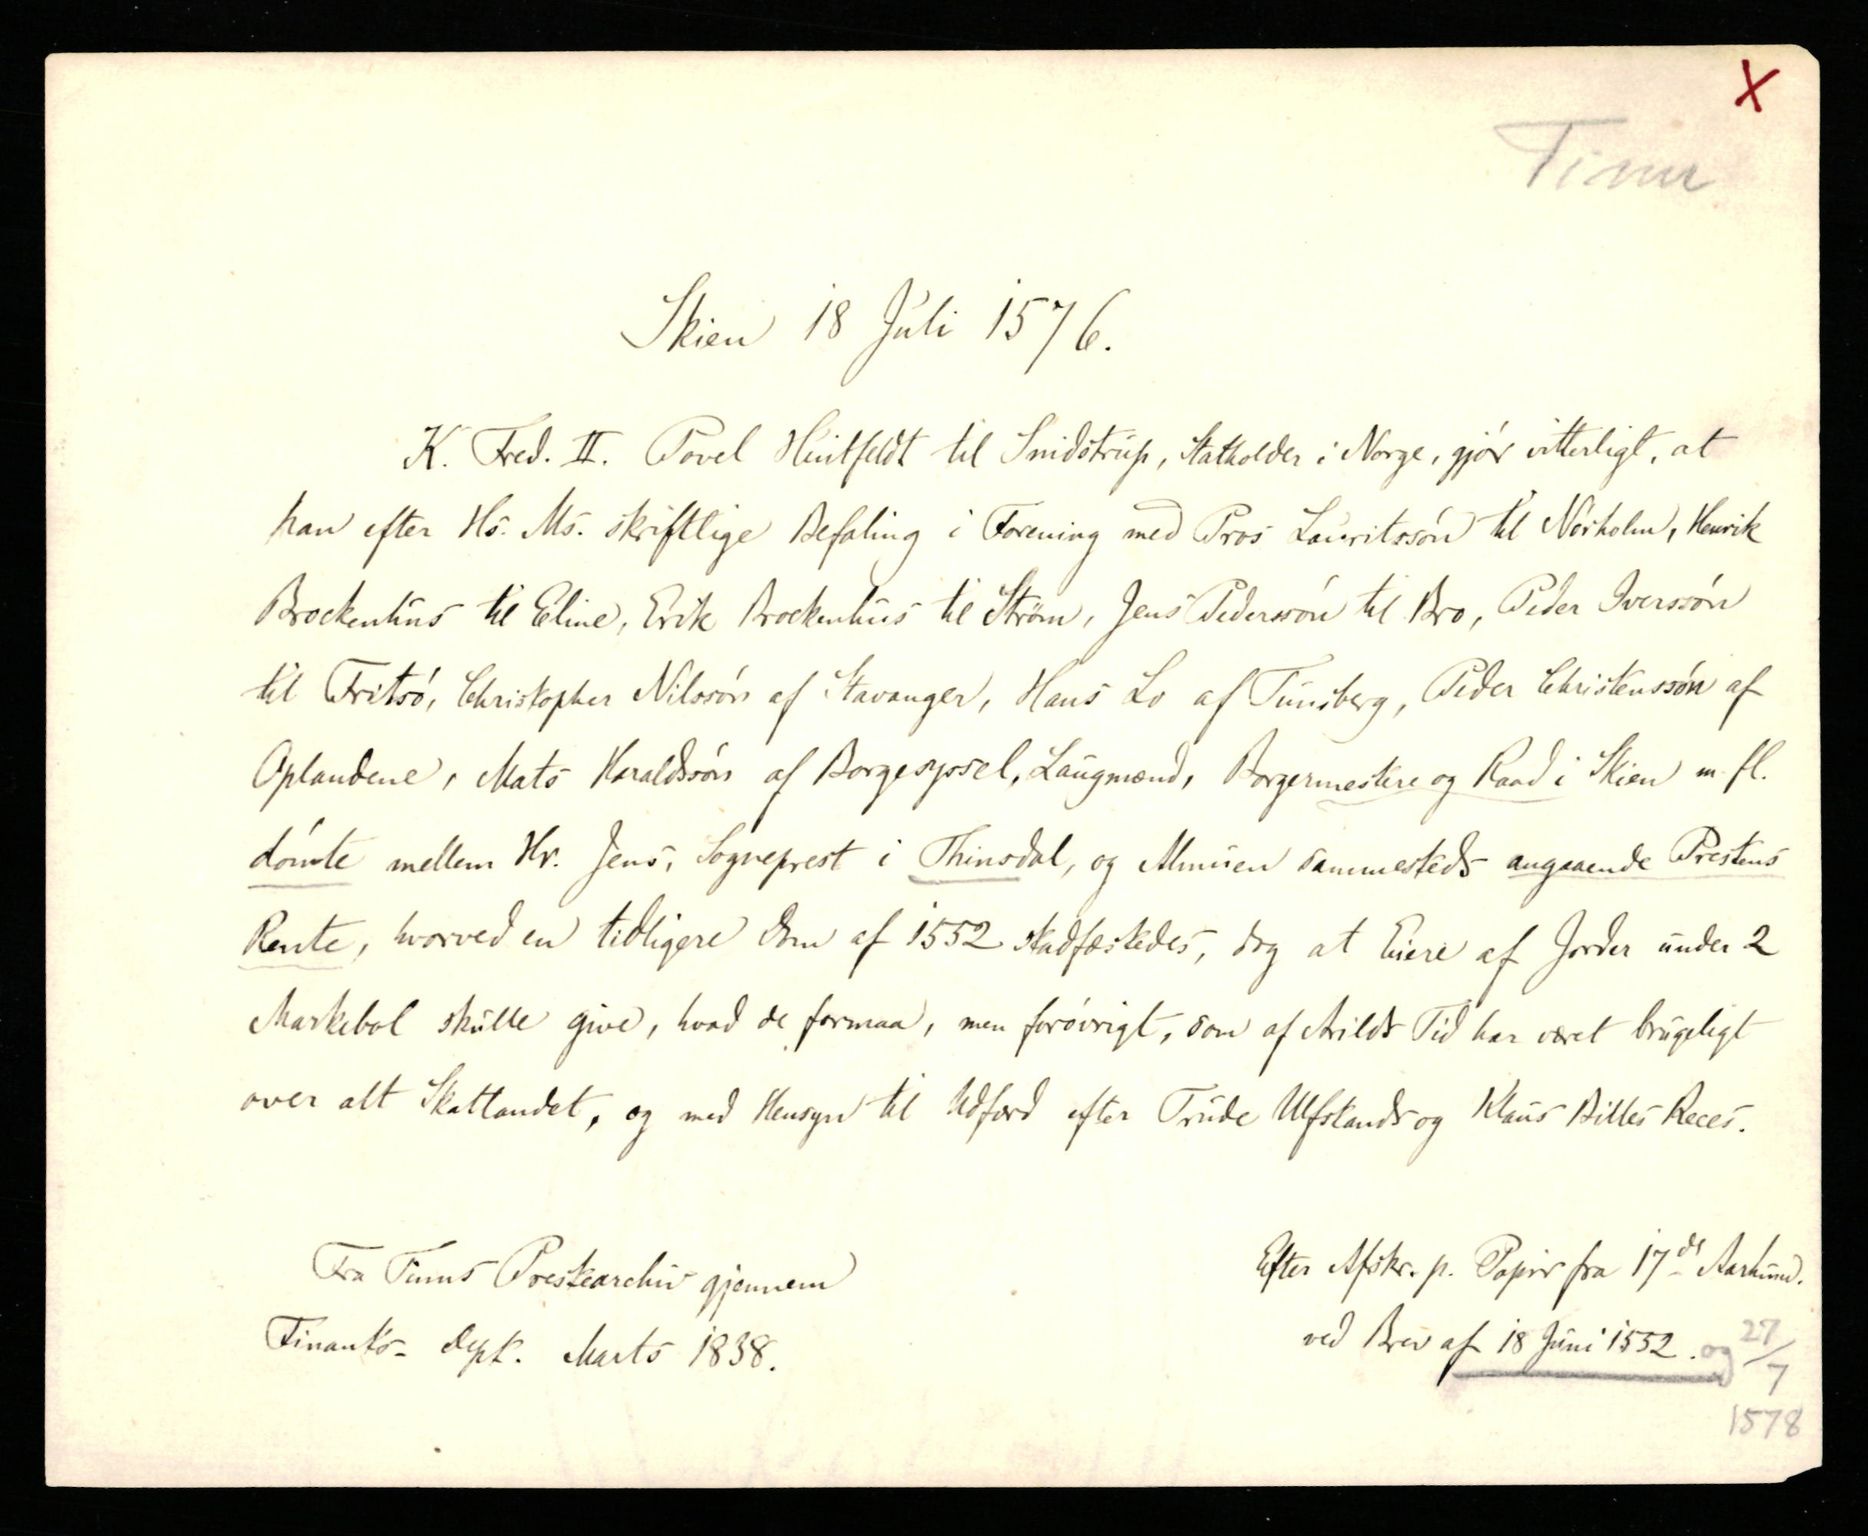 X
Tinn
Skien 18 Juli 1576.
K. Fred. II. Povel Huitfeldt til Snidstrup, Statholder i Norge, gjør vitterligt, at
han efter Hs. Ms. skriftlige Befaling i Forening med Pros Lauritssøn til Nörholm, Henrik
Brockenhus til Eline, Erik Brockenhus til Strøm, Jens Pederssøn til Bro, Peder Iverssøn
til Fritsø, Christopher Nilssøn af Stavanger, Hans Lo af Tunsberg, Peder Christenssøn af
Oplandene, Mats Haraldssøn af Borgesyssel, Laugmænd, Borgermestere og Raad i Skien m. fl.
dømte mellem Hr. Jens, Sogneprest i Thinsdal, og Almuen sammesteds angaaende Prestens
Rente, hvorved en tidligere Dom af 1552 stadfæstedes, dog at Eiere af Jorder under 2
Markebol skulle give, hvad de formaa, men forøvrigt, som af Arilds Tid har været brugeligt
over alt Skatlandet, og med Hensyn til Udfærd efter Trude Ulfstands og Klaus Billes Reces.
Fra Tinns Prestearchiv gjennem
Finants- Dept. Marts 1838.
Efter Afskr. p. Papir fra 17de Aarhund.
ved Brev af 18 Juni 1552. og 27/7
1578